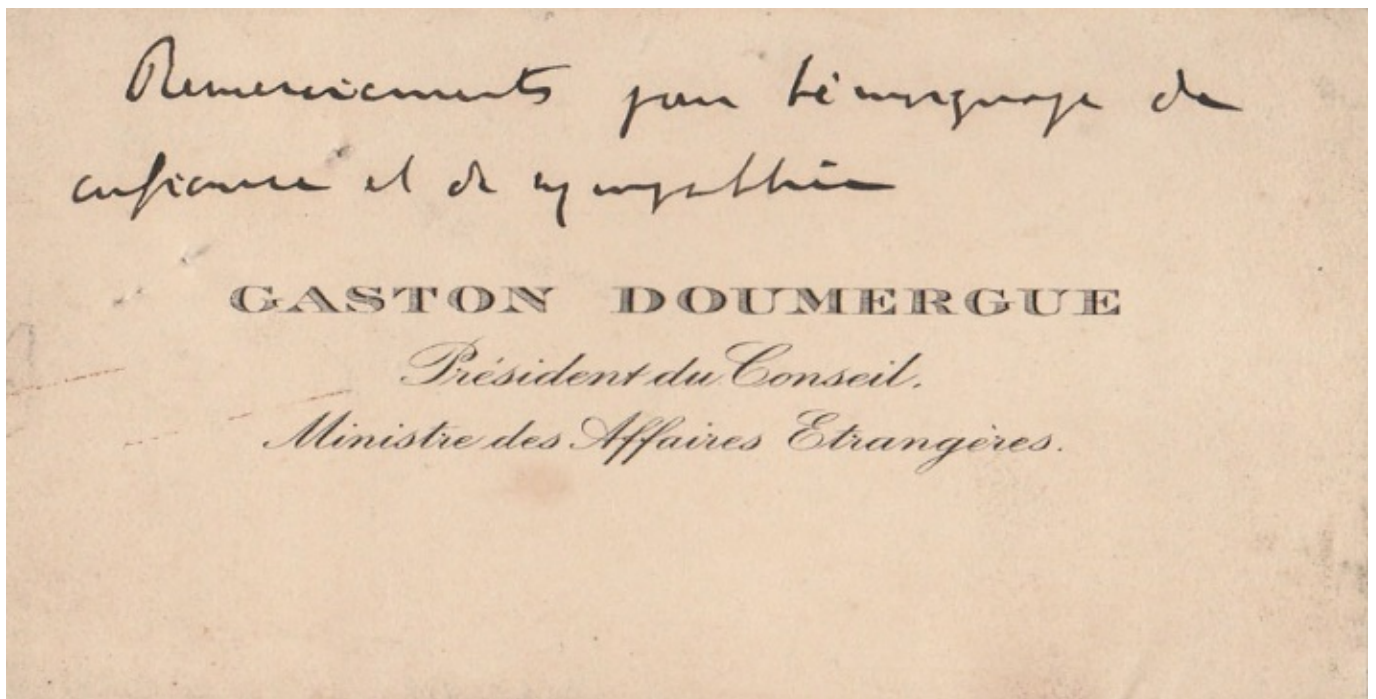 Remerciements pour témoignage de
confiance et de sympathie
GASTON DOUMERGUE
Président du Conseil.
Ministre des Affaires Etrangères.